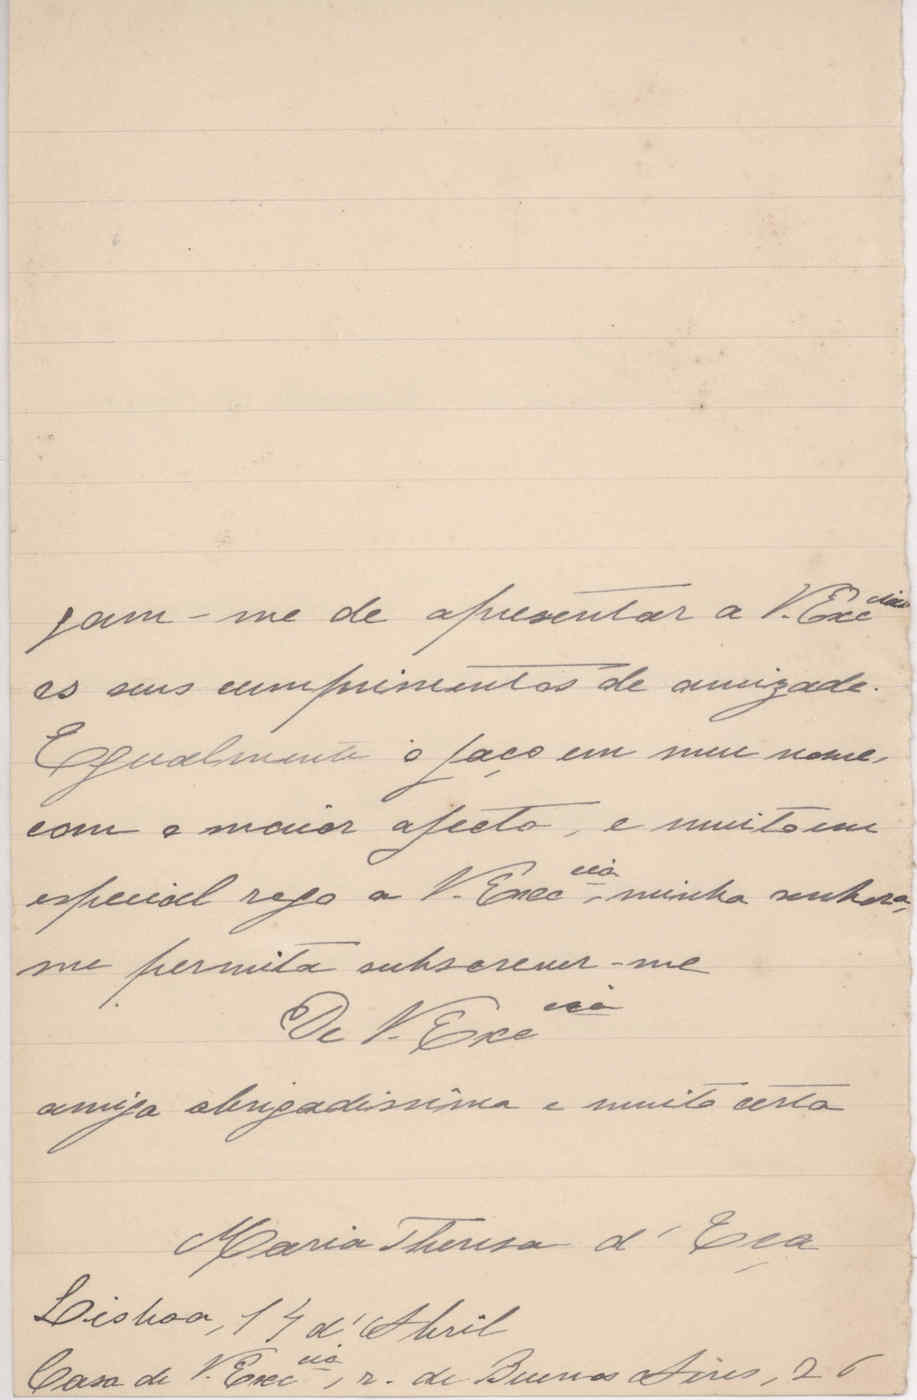 gam-me de apresentar a V. Exc.cias
os seus cumprimentos de amizade.
Egualmente o faço em meu nome,
com o maior afecto, e muito em
especial rogo a V. Exc.cia, minha senhora,
me permita subscrever-me
De V. Exc.cia
amiga obrigadissima e muito certa
Maria Thereza d'Eça
Lisboa, 14 d'Abril
Casa de V. Exc.cia, r. de Buenos Aires, 26